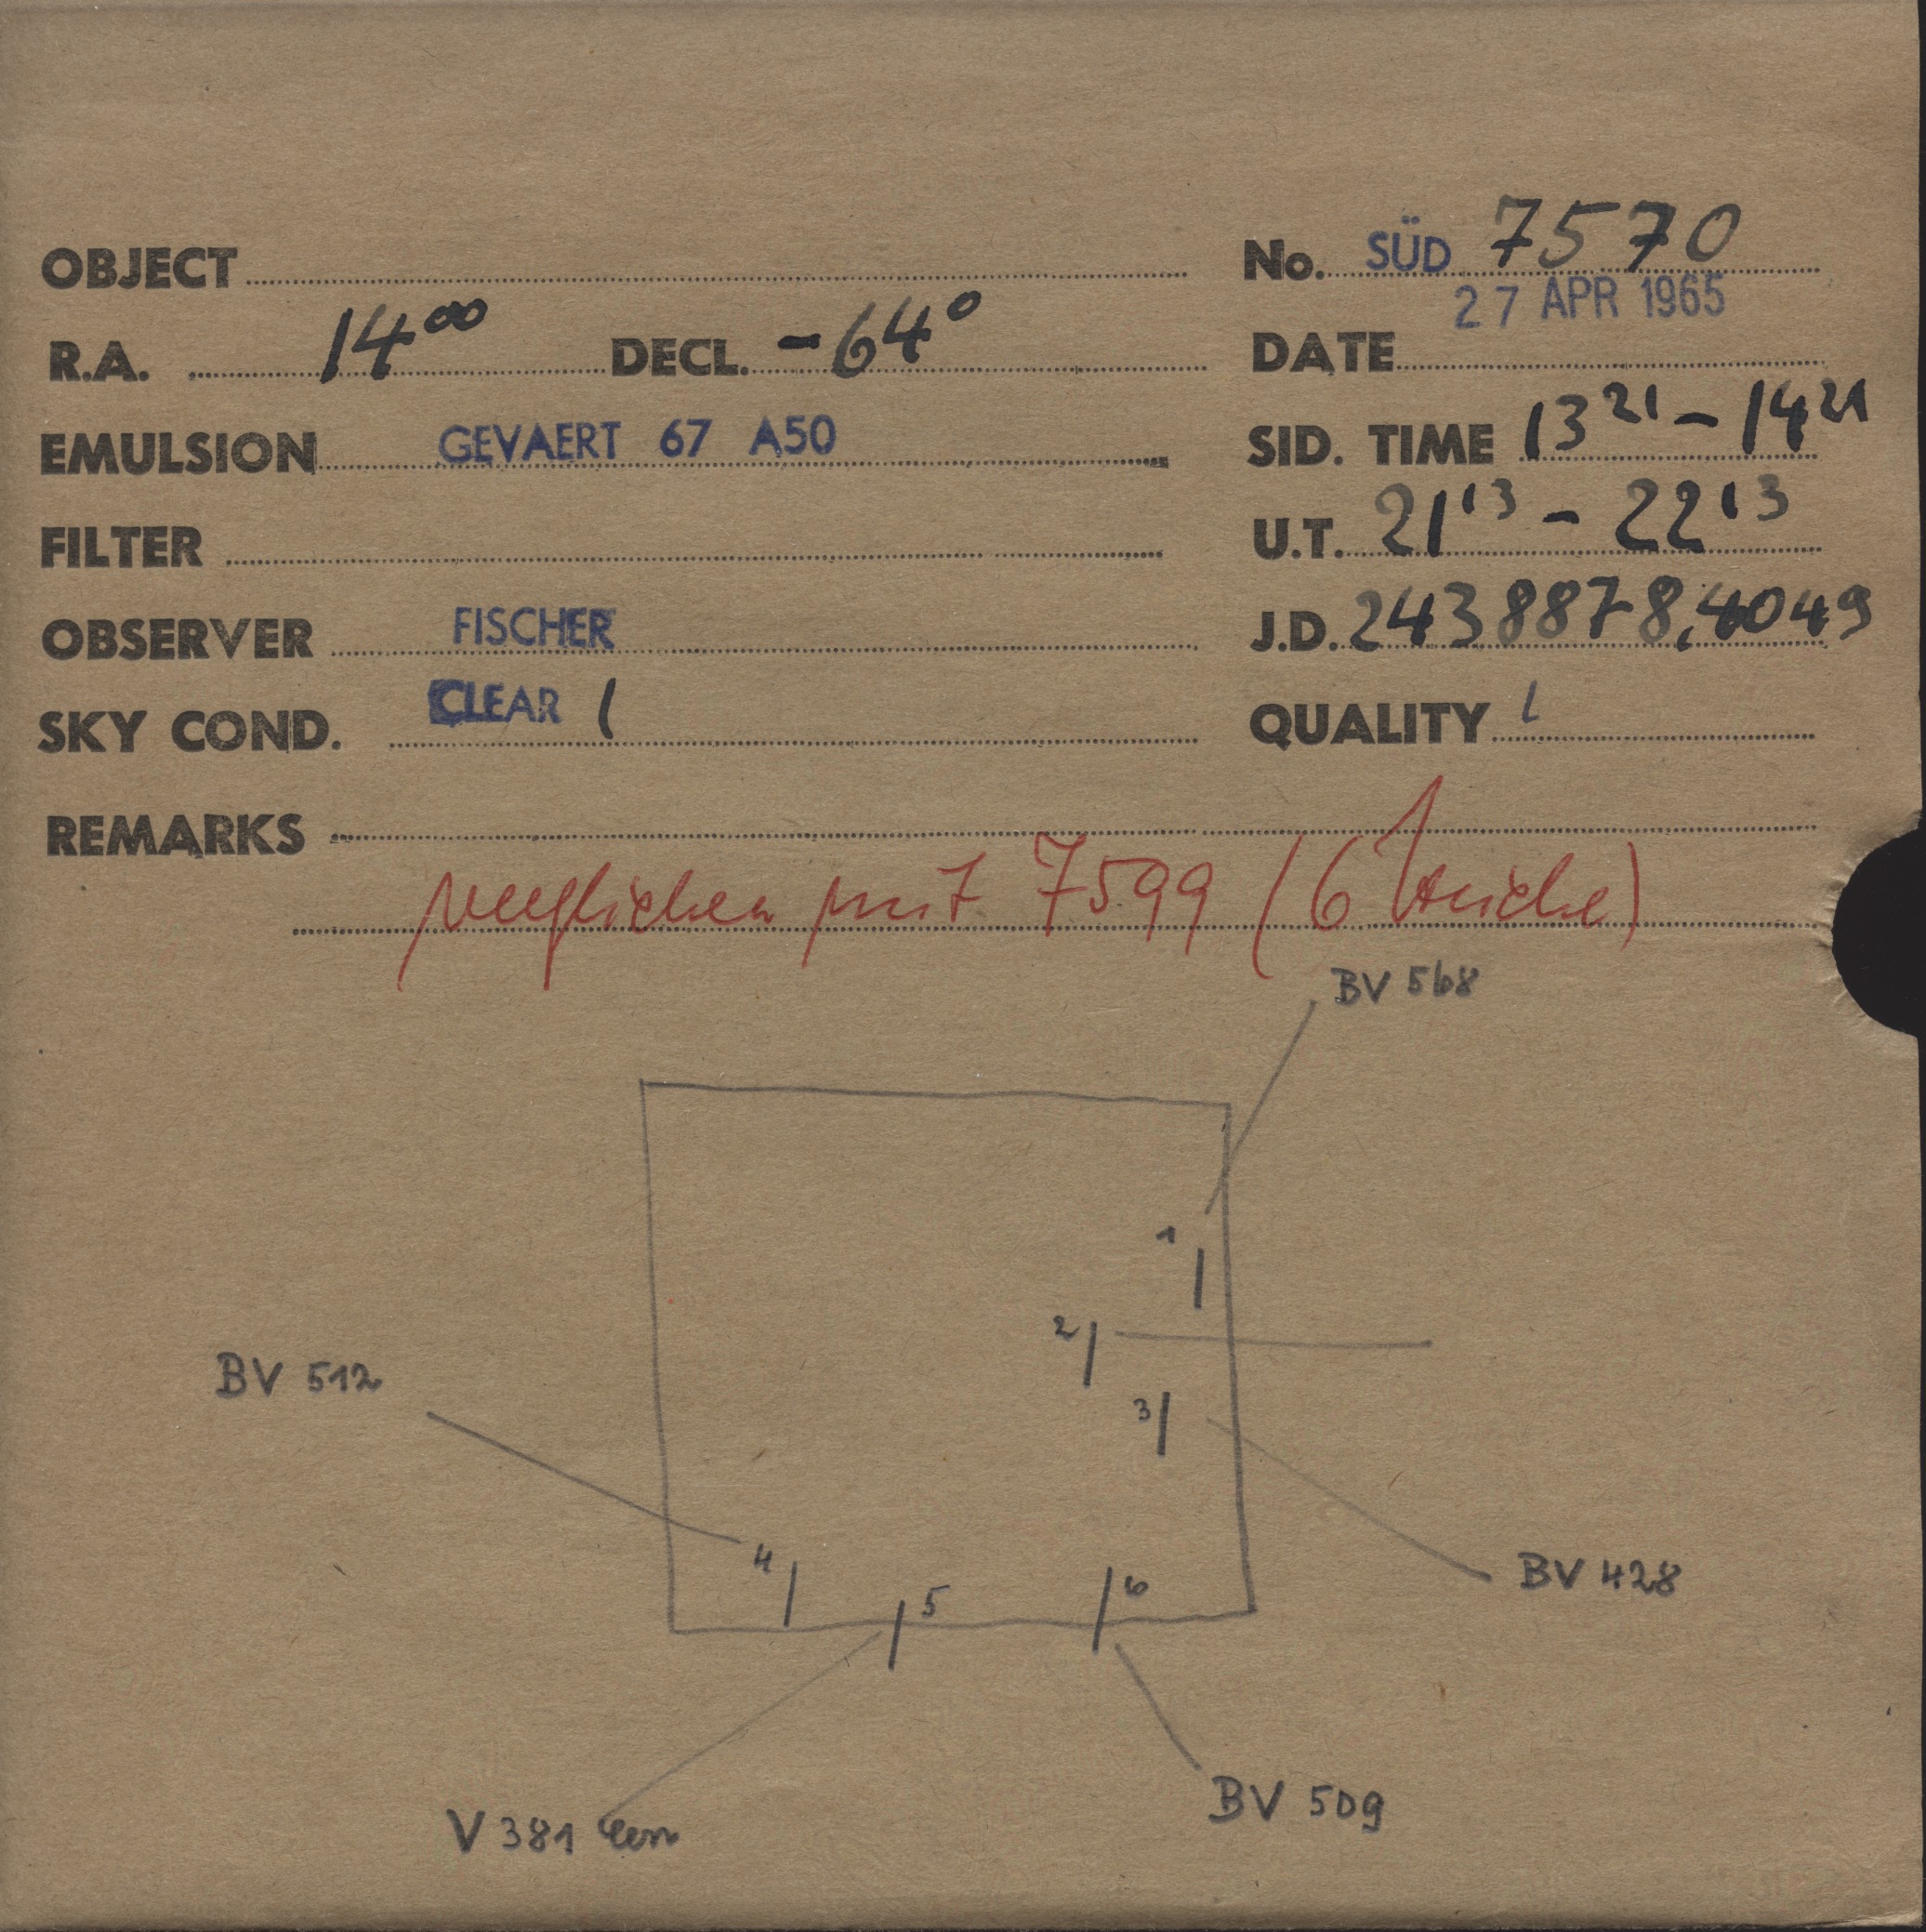 OBJECT
No. SÜD 7570
R.A. 14⁰⁰ DECL. -64°
DATE 27 APR 1965
EMULSION GEVAERT 67 A50
SID. TIME 13²¹ - 14²¹
FILTER
U.T. 21¹³ - 22¹³
OBSERVER FISCHER
J.D. 2438878,4049
SKY COND. CLEAR 1
QUALITY 1
REMARKS
verglichen mit 7599 (6 Striche)
BV 568
1
2
BV 512
3
4
BV 428
5
6
BV 509
V 381 Cen